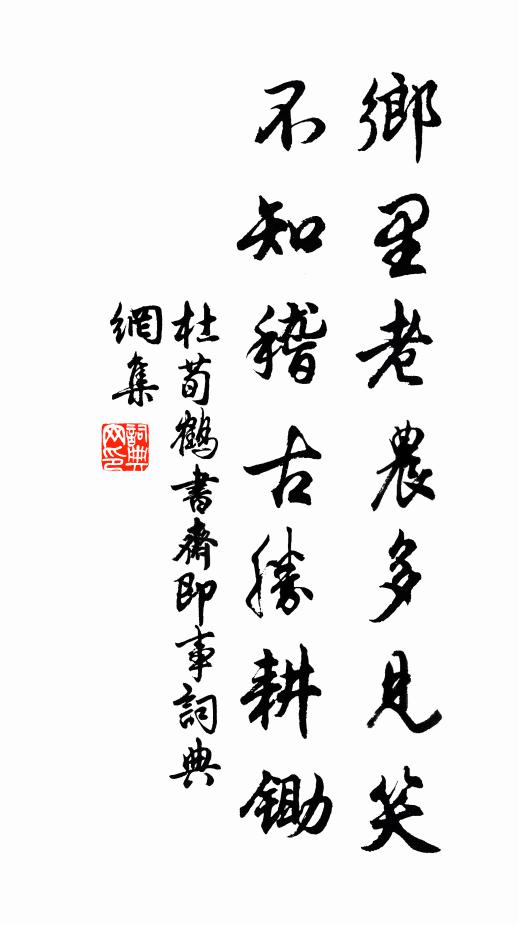 鄉里老農多見笑
不知稽古勝耕鋤
杜荀鶴書齋即事詞典
網集
詞典
网印